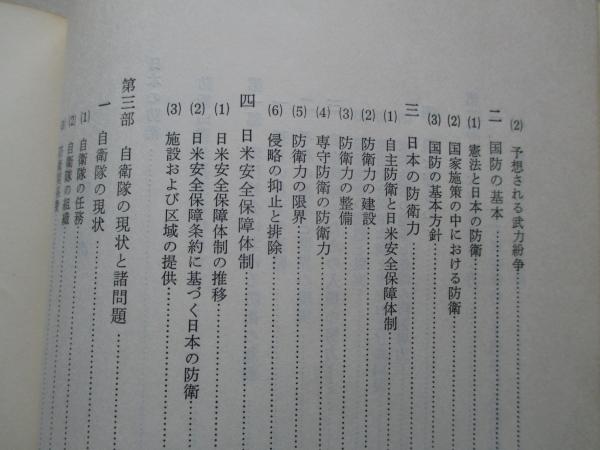 (2) 予想される武力紛争
二 国防の基本
(1) 憲法と日本の防衛
(2) 国家施策の中における防衛
(3) 国防の基本方針
三 日本の防衛力
(1) 自主防衛と日米安全保障体制
(2) 防衛力の建設
(3) 防衛力の整備
(4) 専守防衛の防衛力
(5) 防衛力の限界
(6) 侵略の抑止と排除
四 日米安全保障体制
(1) 日米安全保障体制の推移
(2) 日米安全保障条約に基づく日本の防衛
(3) 施設および区域の提供
第三部 自衛隊の現状と諸問題
一 自衛隊の現状
(1) 自衛隊の任務
(2) 自衛隊の組織